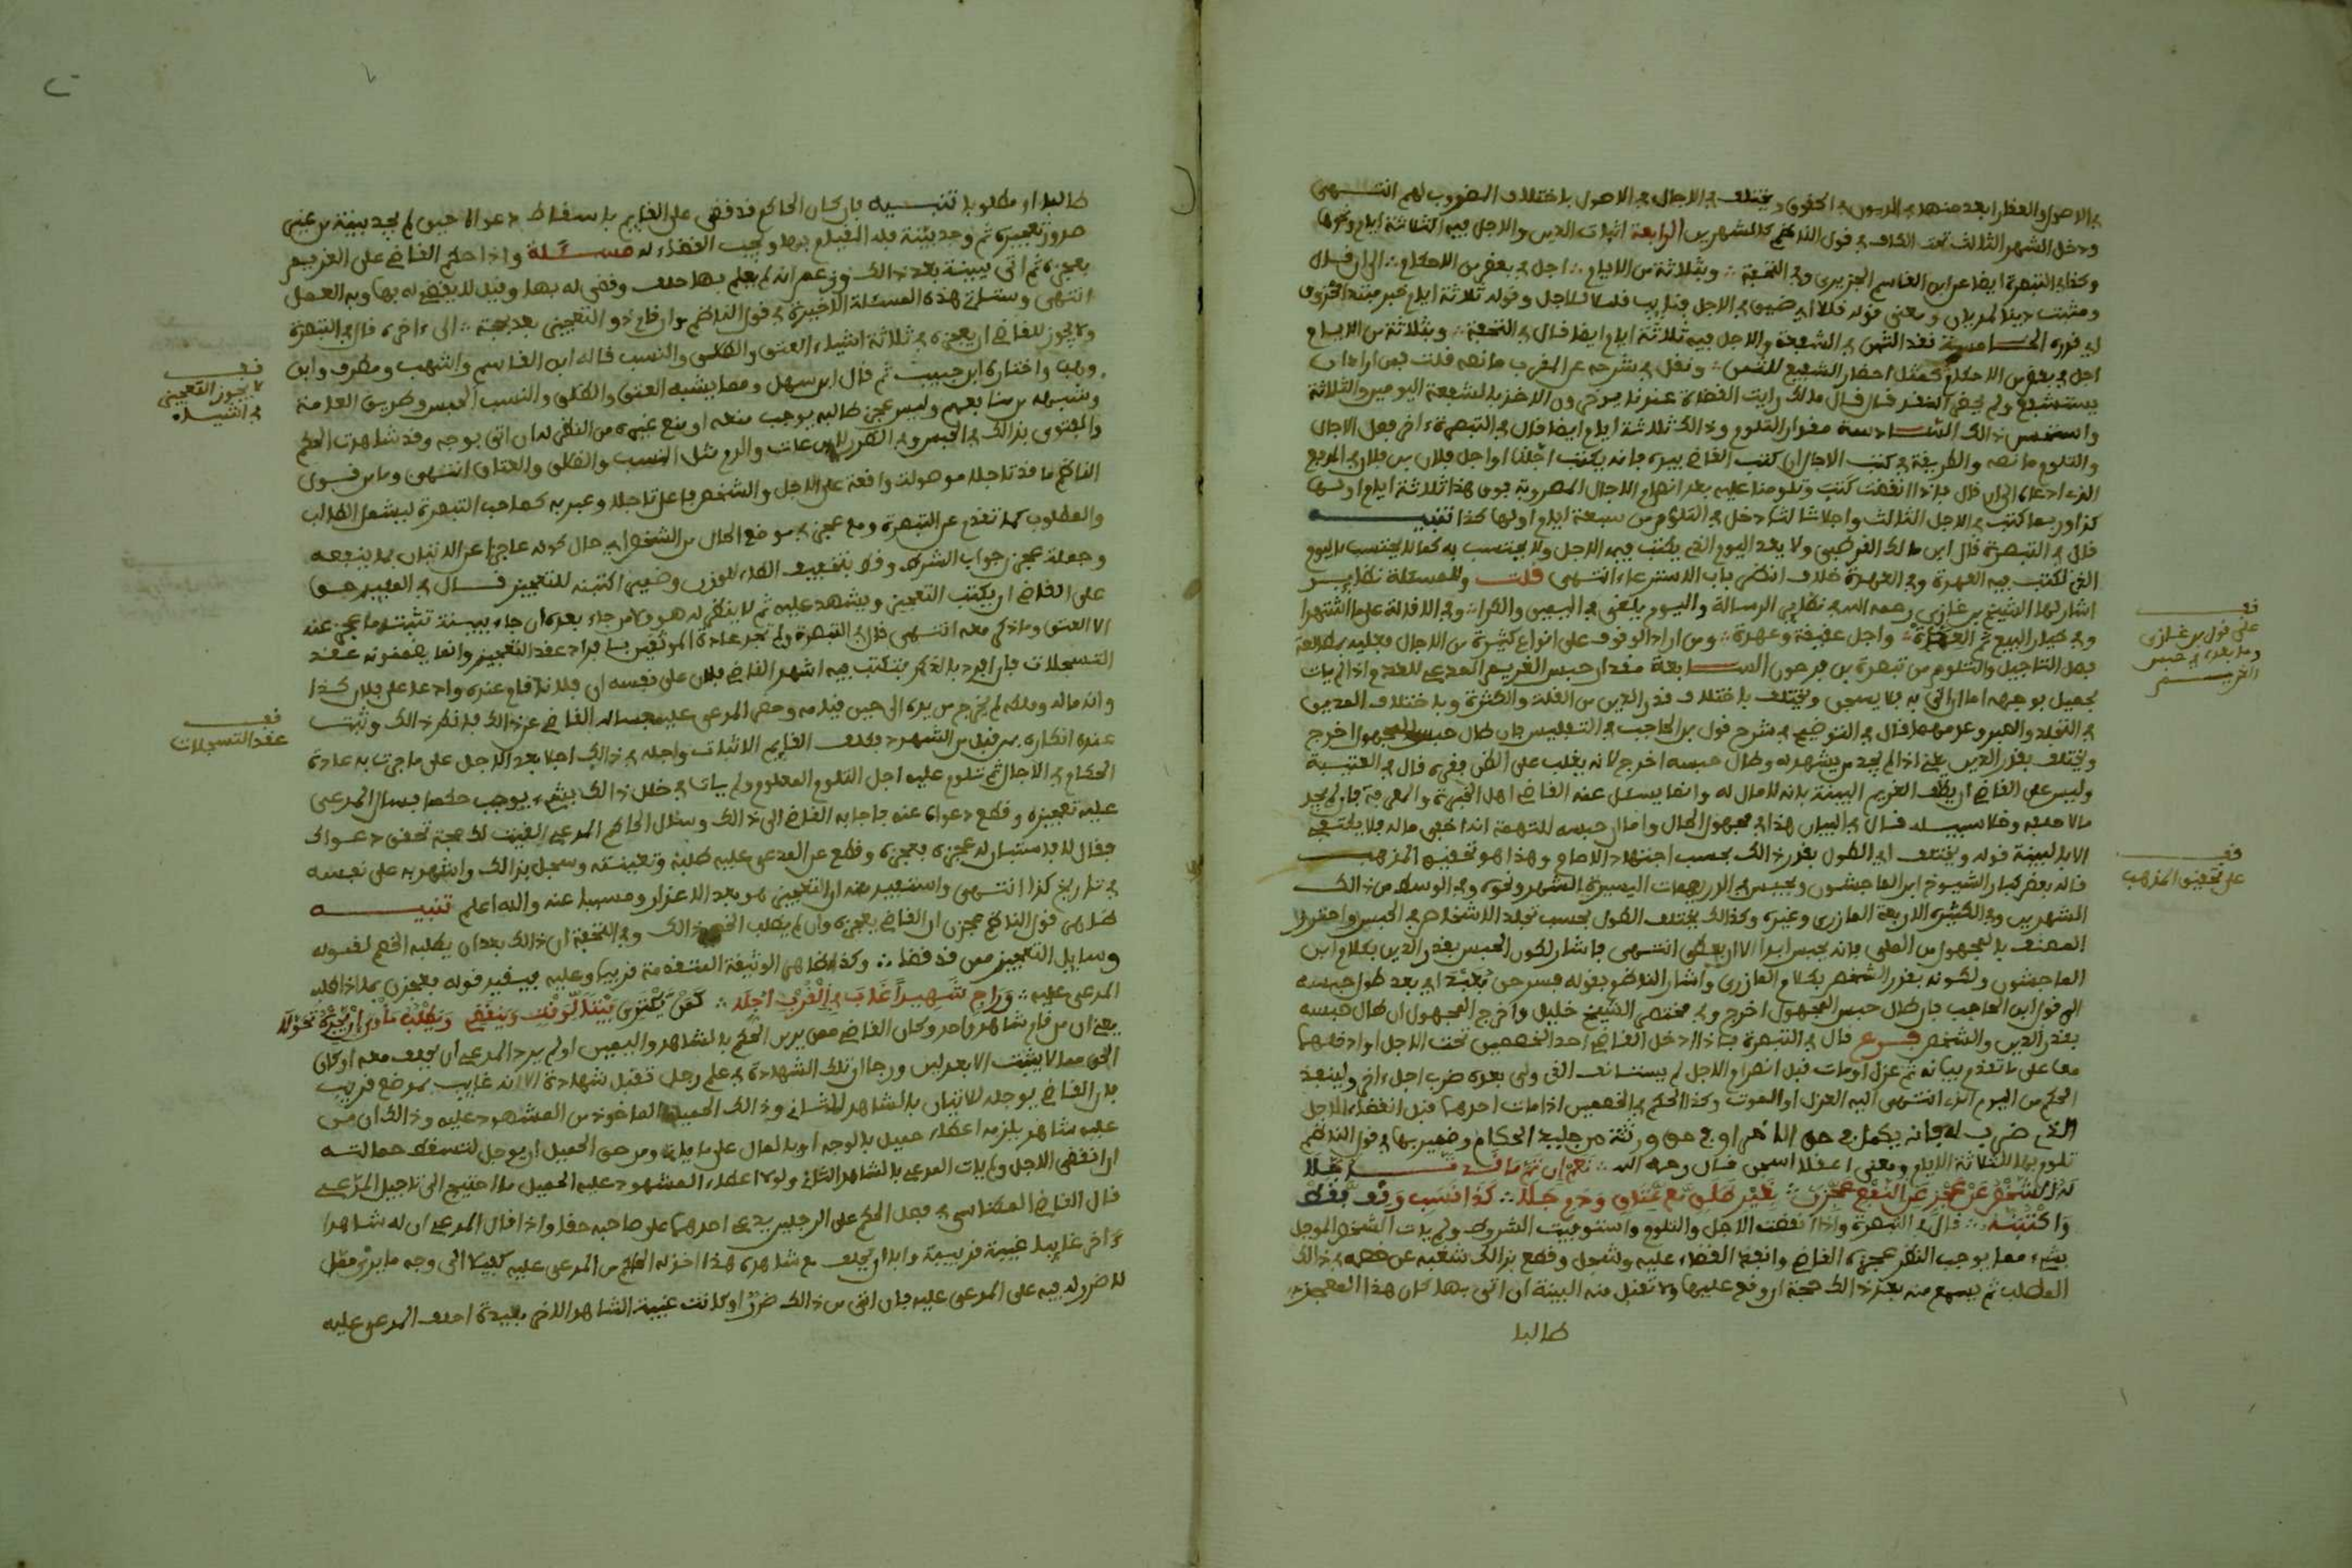 في الاصول والعقار ابعد منها في الديون في الحقوق ويختلف في الاجال في الاصول باختلاف الضروب لهم انتهى
ودخل الشهر الثالث تحت الكاف في قول الناظم كالشهرين الرابعة اثبات الدين والاجل فيه الثلاثة ايام ونحوها
وكذا في التبصرة ايضا عن ابن القاسم الجزيري وفي التحفة وبثلاثة من الايام اجل في بعض من الاحكام الى ان قال
ومثبت دينا لمديان ومعنى قوله فلا اي ضيق في الاجل
الخامسة نقد الثمن في الشفعة والاجل فيه ثلاثة ايام ايضا قال في التحفة وبثلاثة من الايام
اجل في بعض من الاحكام كمثل احضار الشفيع للثمن ونقل في شرحه عن المقرب ما نصه قلت فمن اراد ان
يستشفع ولم يحضر النقد قال قال مالك رايت القضاة عندنا يوخرون الاخذ بالشفعة اليومين والثلاثة
واستحسن ذالك السادسة مقدار التلوم وذالك ثلاثة ايام ايضا قال في التبصرة اخر فصل الاجال
والتلوم ما نصه والطريقة في كتب الاجال ان كتب القاضي بيده فانه يكتب اجلنا او اجل فلان بن فلان في المدفع
الذي ادعاه الى ان قال فاذا انقضت كتب وتلومنا عليه بعد انصرام الاجال المضروبة فوق هذا ثلاثة ايام اولها
كذا وربما كتب في الاجل الثالث واجلا ثالثا دخل في التلوم من سبعة ايام اولها كذا تنبيه
قال في التبصرة قال ابن مالك القرطبي ولا يعد اليوم الذي يكتب فيه الاجل ولا يحتسب به كما لا يحتسب باليوم
الذي تكتب فيه العهدة وفي العهدة خلاف انظر في باب الاسترعاء انتهى قلت وللمسئلة نظاير
اشار لها الشيخ بن غازي رحمه الله في نظاير الرسالة واليوم يلغى في اليمين والكرا وفي الاقالة على ما اشتهرا
وفي خيار البيع ثم العدة واجل عقيقة وعهدة ومن اراد الوقوف على انواع كثيرة من الاجال فعليه بمطالعة
فصل التاجيل والتلوم من تبصرة بن فرحون السابعة مقدار حبس الغريم المدعي للعدم واذا لم يات
بحميل بوجهه اما ان اتى به فلا يسجن ويختلف باختلاف قدر الدين من القلة والكثرة وباختلاف المدين
في التوضيح في شرح قول بن الحاجب في التفليس فان طال حبس المجهول اخرج
ويختلف بقدر الدين يعني اذا لم يجد من يشهد له وطال حبسه اخرج لانه يغلب على الظن فقره قال في العتبية
وليس على القاضي ان يكلف الغريم البينة بانه لا مال له وانما يسئل عنه القاضي اهل الخبرة والمعرفة فان لم يجد
مالا حلفه وخلا سبيله قال في البيان هذا في مجهول الحال واما ان حبسه للتهمة انه اخفى ماله فلا يكتفي
الا بالبينة قوله ويختلف اي الطول بقدر ذالك بحسب اجتهاد الامام وهذا هو تحقيق المذهب
قاله بعض كبار الشيوخ ابن الماجشون ويحبس في الدريهمات اليسيرة الشهر ونحوه وفي الوسط من ذالك
الشهرين وفي الكثير الاربعة المازري وغيره وكذالك يختلف الطول بحسب تجلد الاشخاص في الحبس واحترز
المصنف بالمجهول من الملي فانه يحبس ابدا الا ان يعطي انتهى فاشار لكون الحبس بقدر الدين بكلام ابن
الماجشون ولكونه بقدر الشخص بكلام المازري واشار الناظم بقوله فسرحن بعيد اي بعد طول حبسه
الى قول ابن الحاجب فان طال حبس المجهول اخرج وفي مختصر الشيخ خليل واخرج المجهول ان طال حبسه
بقدر الدين والشخص فرع قال في التبصرة فاذا ادخل القاضي احد الخصمين تحت الاجل او ادخلهما
معا على ما تقدم بيانه ثم عزل او مات قبل انصرام الاجل لم يستانف الذي ولي بعده ضرب اجل اخر ولينفذ
الحكم من اليوم الذي انتهى اليه العزل او الموت وكذا الحكم في الخصمين اذا مات احدهما قبل انقضاء الاجل
الذي ضرب له فانه يكمل في حق الاخر او في حق ورثته من جليد الحكام وضمير بها في قول الناظم
تلوم بها للثلاثة الايام ومعنى اعقلا احبس قال رحمه الله نعم ان تم ما قد تاجلا
لدى الشخص عن عجز عن النفع عجزن بغير طلاق مع عتاق ودم جلا كذا نسب وقف فقط
واكتبنه قال في التبصرة واذا انقضت الاجل والتلوم واستوفيت الشروط ولم يات الشخص الموجل
بشيء مما يوجب النظر عجزه القاضي وانفذ القضاء عليه وسجل وقطع بذالك شغبه عن خصمه في ذالك
المطلب ثم يسمع منه بعد ذالك حجة ان وقع عليها ولا تقبل منه البينة ان اتى بها كان هذا المعجز
طالبا
قف
على قول بن غازي
وما بعده في حبس
الغريم
قف
على تحقيق المذهب
طالبا او مطلوبا تنبيه فان كان الحاكم قد قضى على القايم باسقاط دعواه حين لم يجد بينة من غير
صدور تعجيزه ثم وجد بينة فله القيام بها ويجب القضاء له مسئلة واذا حكم القاضي على الغريم
بعجزه ثم اتى ببينة بعد ذالك وزعم انه لم يعلم بها حلف وقضى له بها وقيل لا يقضى له بها وبه العمل
انتهى وستاتي هذه المسئلة الاخيرة في قول الناظم وان قام ذو التعجيز بعد بحجة الى اخره قال في التبصرة
ولا يجوز للقاضي ان يعجزه في ثلاثة اشياء العتق والطلاق والنسب قاله ابن القاسم واشهب ومطرف وابن
وهب واختاره ابن حبيب ثم قال ابن سهل ومما يشبه العتق والطلاق والنسب الحبس وطريق العامة
وشبهه من منافعهم وليس عجز طالبه يوجب منعه او منع غيره من النظر له ان اتى بوجه وقد شاهدت الحكم
والفتوى بذالك في الحبس وفي الطرق والدم مثل النسب والطلاق والعتاق انتهى وما من قول
الناظم ما قد تاجلا موصولة واقعة على الاجل والشخص فاعل تاجلا وعبر به كصاحب التبصرة ليشمل الطالب
والمطلوب كما تقدم عن التبصرة ومع عجز في موضع الحال من الشخص اي حال كونه عاجزا عن الاتيان بما ينفعه
وجملة عجزن جواب الشرط وقلا بتخفيف الطاء للوزن وضمير اكتبنه للتعجيز قال في المفيد هو
على القاضي ان يكتب التعجيز ويشهد عليه ثم لا ينظر له هو ولا من جاء بعده ان جاء ببينة تثبت ما عجز عنه
الا العتق وما ذكر معه انتهى قال في التبصرة ولم تجر عادة الموثقين بافراد عقد التعجيز وانما يضمنونه عقد
التسجلات فان افرد بالذكر فتكتب فيه اشهد القاضي فلان على نفسه ان فلانا قام عنده وادعا على فلان كذا
وانه ماله وملكه لم يخرج من يده الى حين قيامه وحضر المدعى عليه فساله القاضي عن ذالك فانكر ذالك وثبت
عنده انكاره بمن قبل من الشهود فكلف القايم الاثبات واجله في ذالك اجلا بعد اجل على ما جرت به عادة
الحكام في الاجال ثم تلوم عليه اجل التلوم المعلوم ولم يات في خلال ذالك بشيء يوجب حكما فسال المدعى
عليه تعجيزه وقطع دعواه عنه فاجابه القاضي الى ذالك وسال الحاكم المدعي ابقيت لك حجة تحقق دعواك
فقال لا فاستبان له عجزه فعجزه وقطع عن المدعى عليه طلبه وتعنيته وسجل بذالك واشهد به على نفسه
في تاريخ كذا انتهى واستفيد منه ان التعجيز هو بعد الاعذار ومسبب عنه والله اعلم تنبيه
ظاهر قول الناظم عجزن ان القاضي يعجزه وان لم يطلب الخصم ذالك وفي التحفة ان ذالك بعد ان يطلبه الخصم لقوله
وسايل التعجيز ممن قد قضى وكذا ظاهر الوثيقة المتقدمة قريبا وعليه فيقيد قوله فعجزن بما اذا طلبه
المدعى عليه وراج شهيدا غاب في القرب اجله كمن يكتري بيتا لوقت وينقضي
يعني ان من قام شاهد واحد وكان القاضي ممن يرى الحكم بالشاهد واليمين او لم يرد المدعي ان يحلف معه او كان
الحق مما لا يثبت الا بعدلين ورجا ان تلك الشهادة في علم رجل تقبل شهادة الا انه غايب بموضع قريب
فان القاضي يوجله للاتيان بالشاهد الثاني وذالك الحميل الماخوذ من المشهود عليه وذالك ان من
عليه شاهد يلزمه اعطاء حميل بالوجه او بالمال على ما ياتي ومن حق الحميل ان يوجل لتسقط حمالته
ان انقضى الاجل ولم يات المدعي بالشاهد الثاني ولولا اعطاء المشهود عليه الحميل ما احتيج الى تاجيل المدعي
قال القاضي المكناسي في فصل الحكم على الرجلين يدعي احدهما على صاحبه حقا واذا قال المدعي ان له شاهدا
واخر غايبا غيبة قريبة وابا ان يحلف مع شاهده هذا اخذ له الحاكم من المدعى عليه كفيلا الى وجه ما يرى مما
لا ضرر له فيه على المدعى عليه فان اتى من ذالك ضرر او كانت غيبة الشاهد الاخر بعيدة احلف المدعى عليه
قف
لا يجوز التعجيز
في اشياء
قف
عقد التسجلات